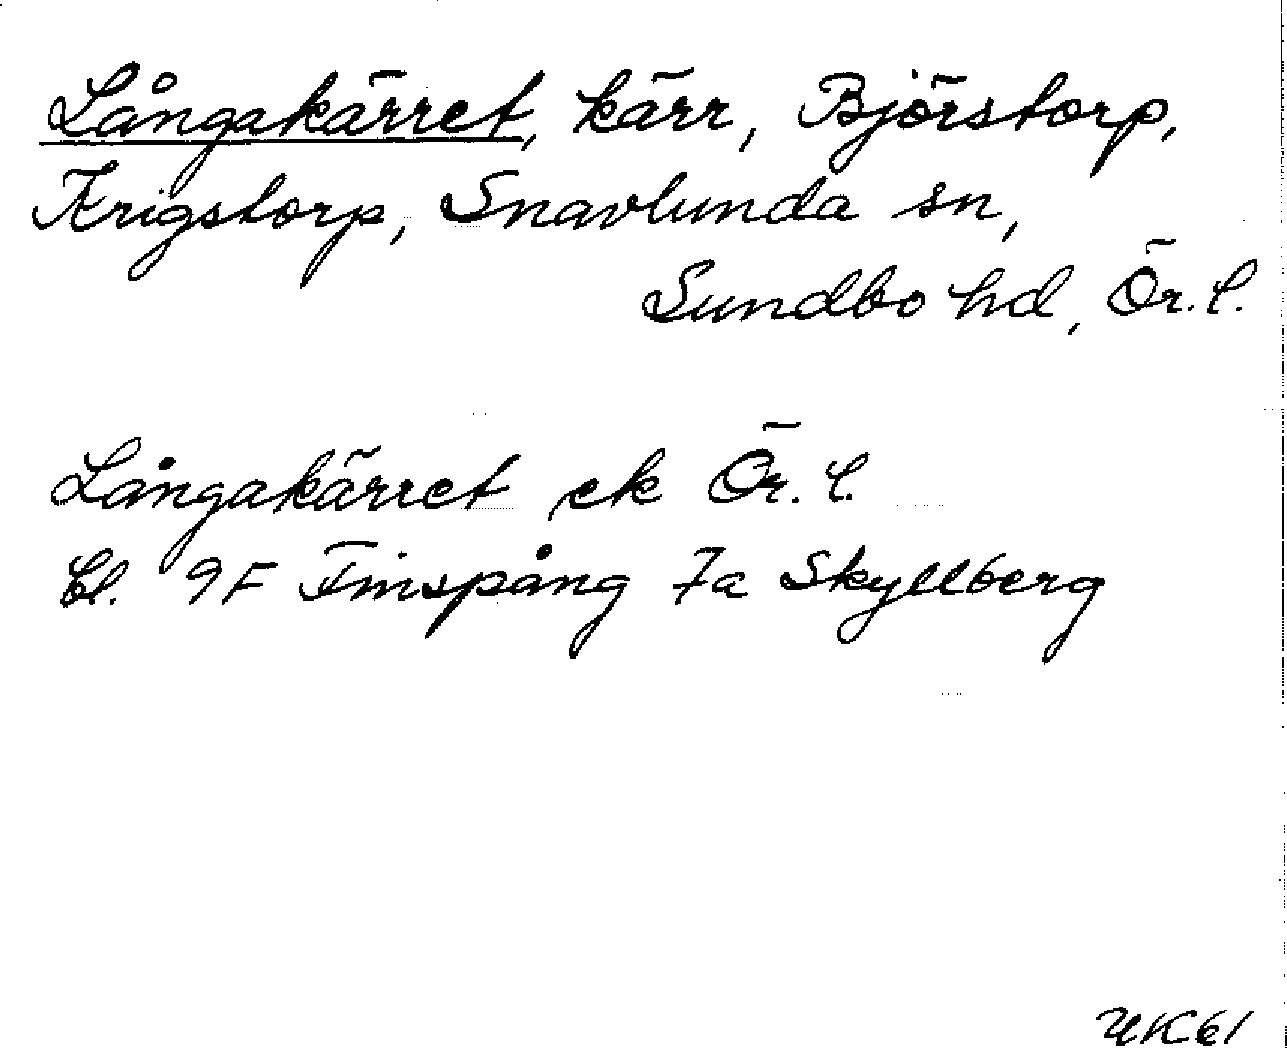 Långakärret, kärr, Björstorp,
Krigstorp, Snavlunda sn,
Sundbo hd, Ör. l.
Långakärret ek Ör. l.
bl. 9F Finspång 7a Skyllberg
UK61